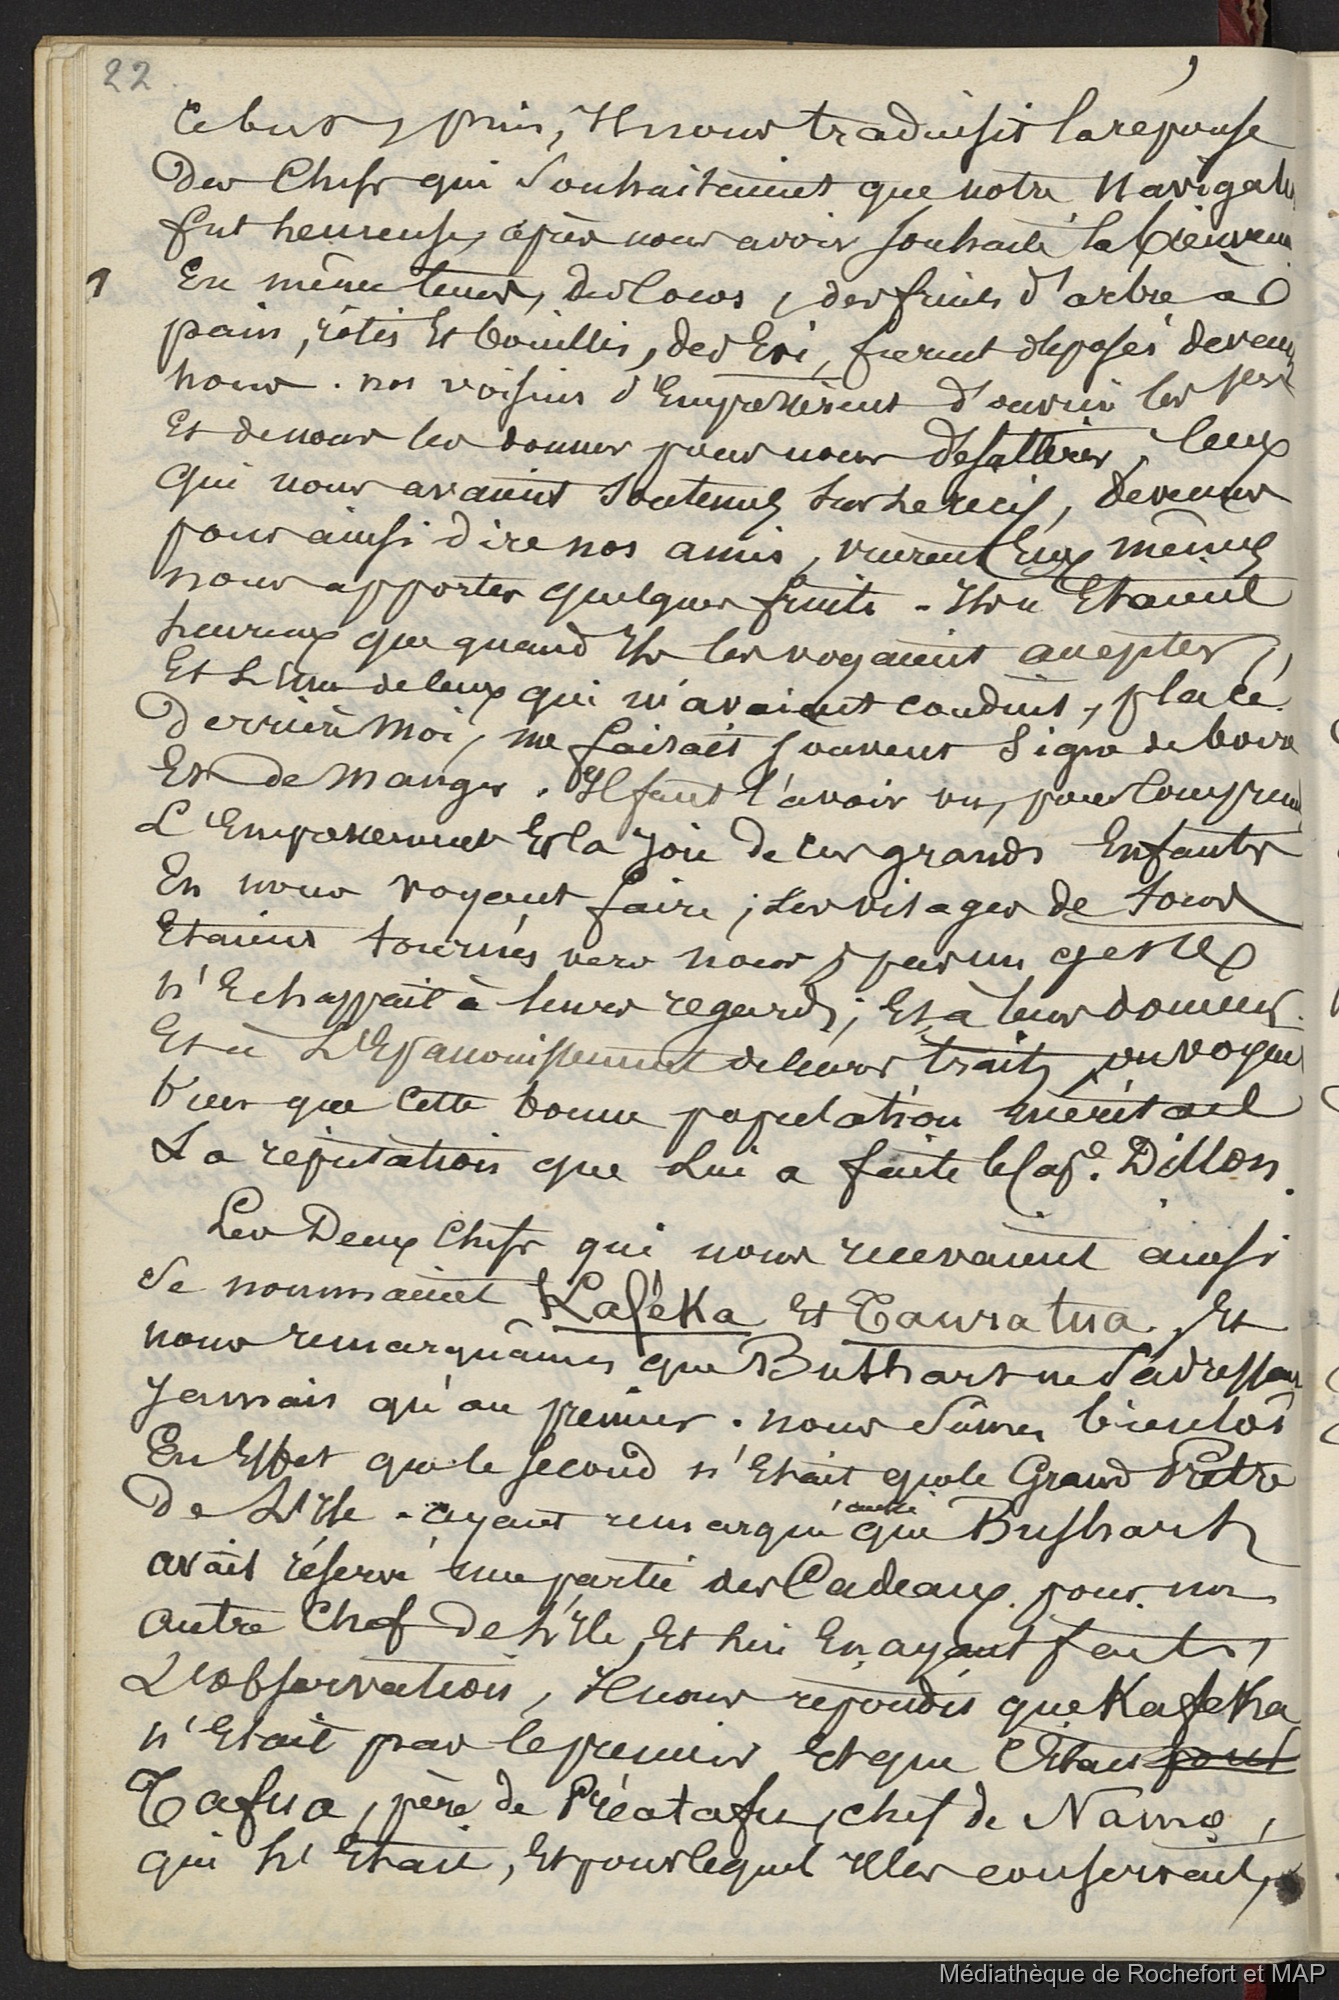 22
ce but, puis, Il nous traduisit la reponse
des Chefs qui souhaitaient que notre Navigati
fut heureuse, après nous avoir souhaité la bienvenu
1 En même temps, des Cocos, des fruits d'arbre à
pain, rôtis Et bouillis, des Evi, furent déposés devant
nous. nos voisins s'Empressèrent d'ouvrir les
Et de nous les donner pour nous désaltérer, Ceux
qui nous avaient soutenus sur le récif, devenus
pour ainsi dire nos amis, vinrent Eux mêmes
nous apporter quelques fruits - Ils n'Etaient
heureux que quand Ils les voyaient accepter,
Et L'un de Ceux qui m'avaient conduit, placé
Derrière Moi, me faisait souvent Signe de boire
Et de Manger. Il faut l'avoir vu, pour Comprend
L'Empressement Et la Joie de ces grands Enfants
En nous voyant faire; Les visages de tous
Etaient tournés vers nous, pas un geste
n'Echappait à leurs regards; Et à leur douceur
Et à L'Epanouissement de leurs traits, on voyait
bien que Cette bonne population méritait
La réputation que Lui a faite le Cape. Dillon.
Les Deux Chefs qui nous recevaient ainsi
Se nommaient Kaféka Et Taura tua, Et
nous remarquâmes que Bushart ne s'adressait
Jamais qu'au premier. nous sûmes bientôt
En Effet que le second n'Etait que le Grand Prêtre
De L'Ile - ayant remarqué aussi que Bushart
avait réservé une partie des Cadeaux pour un
autre Chef De L'Ile, Et lui En ayant fait
L'observation, Il nous répondit que Kafeka
n'Etait pas le premier Et que C'Etait pour
Tafua, père de Préatafu, chef de Namo,
qui L'Etait, Et pour lequel Il les conservait,
Médiathèque de Rochefort et MAP